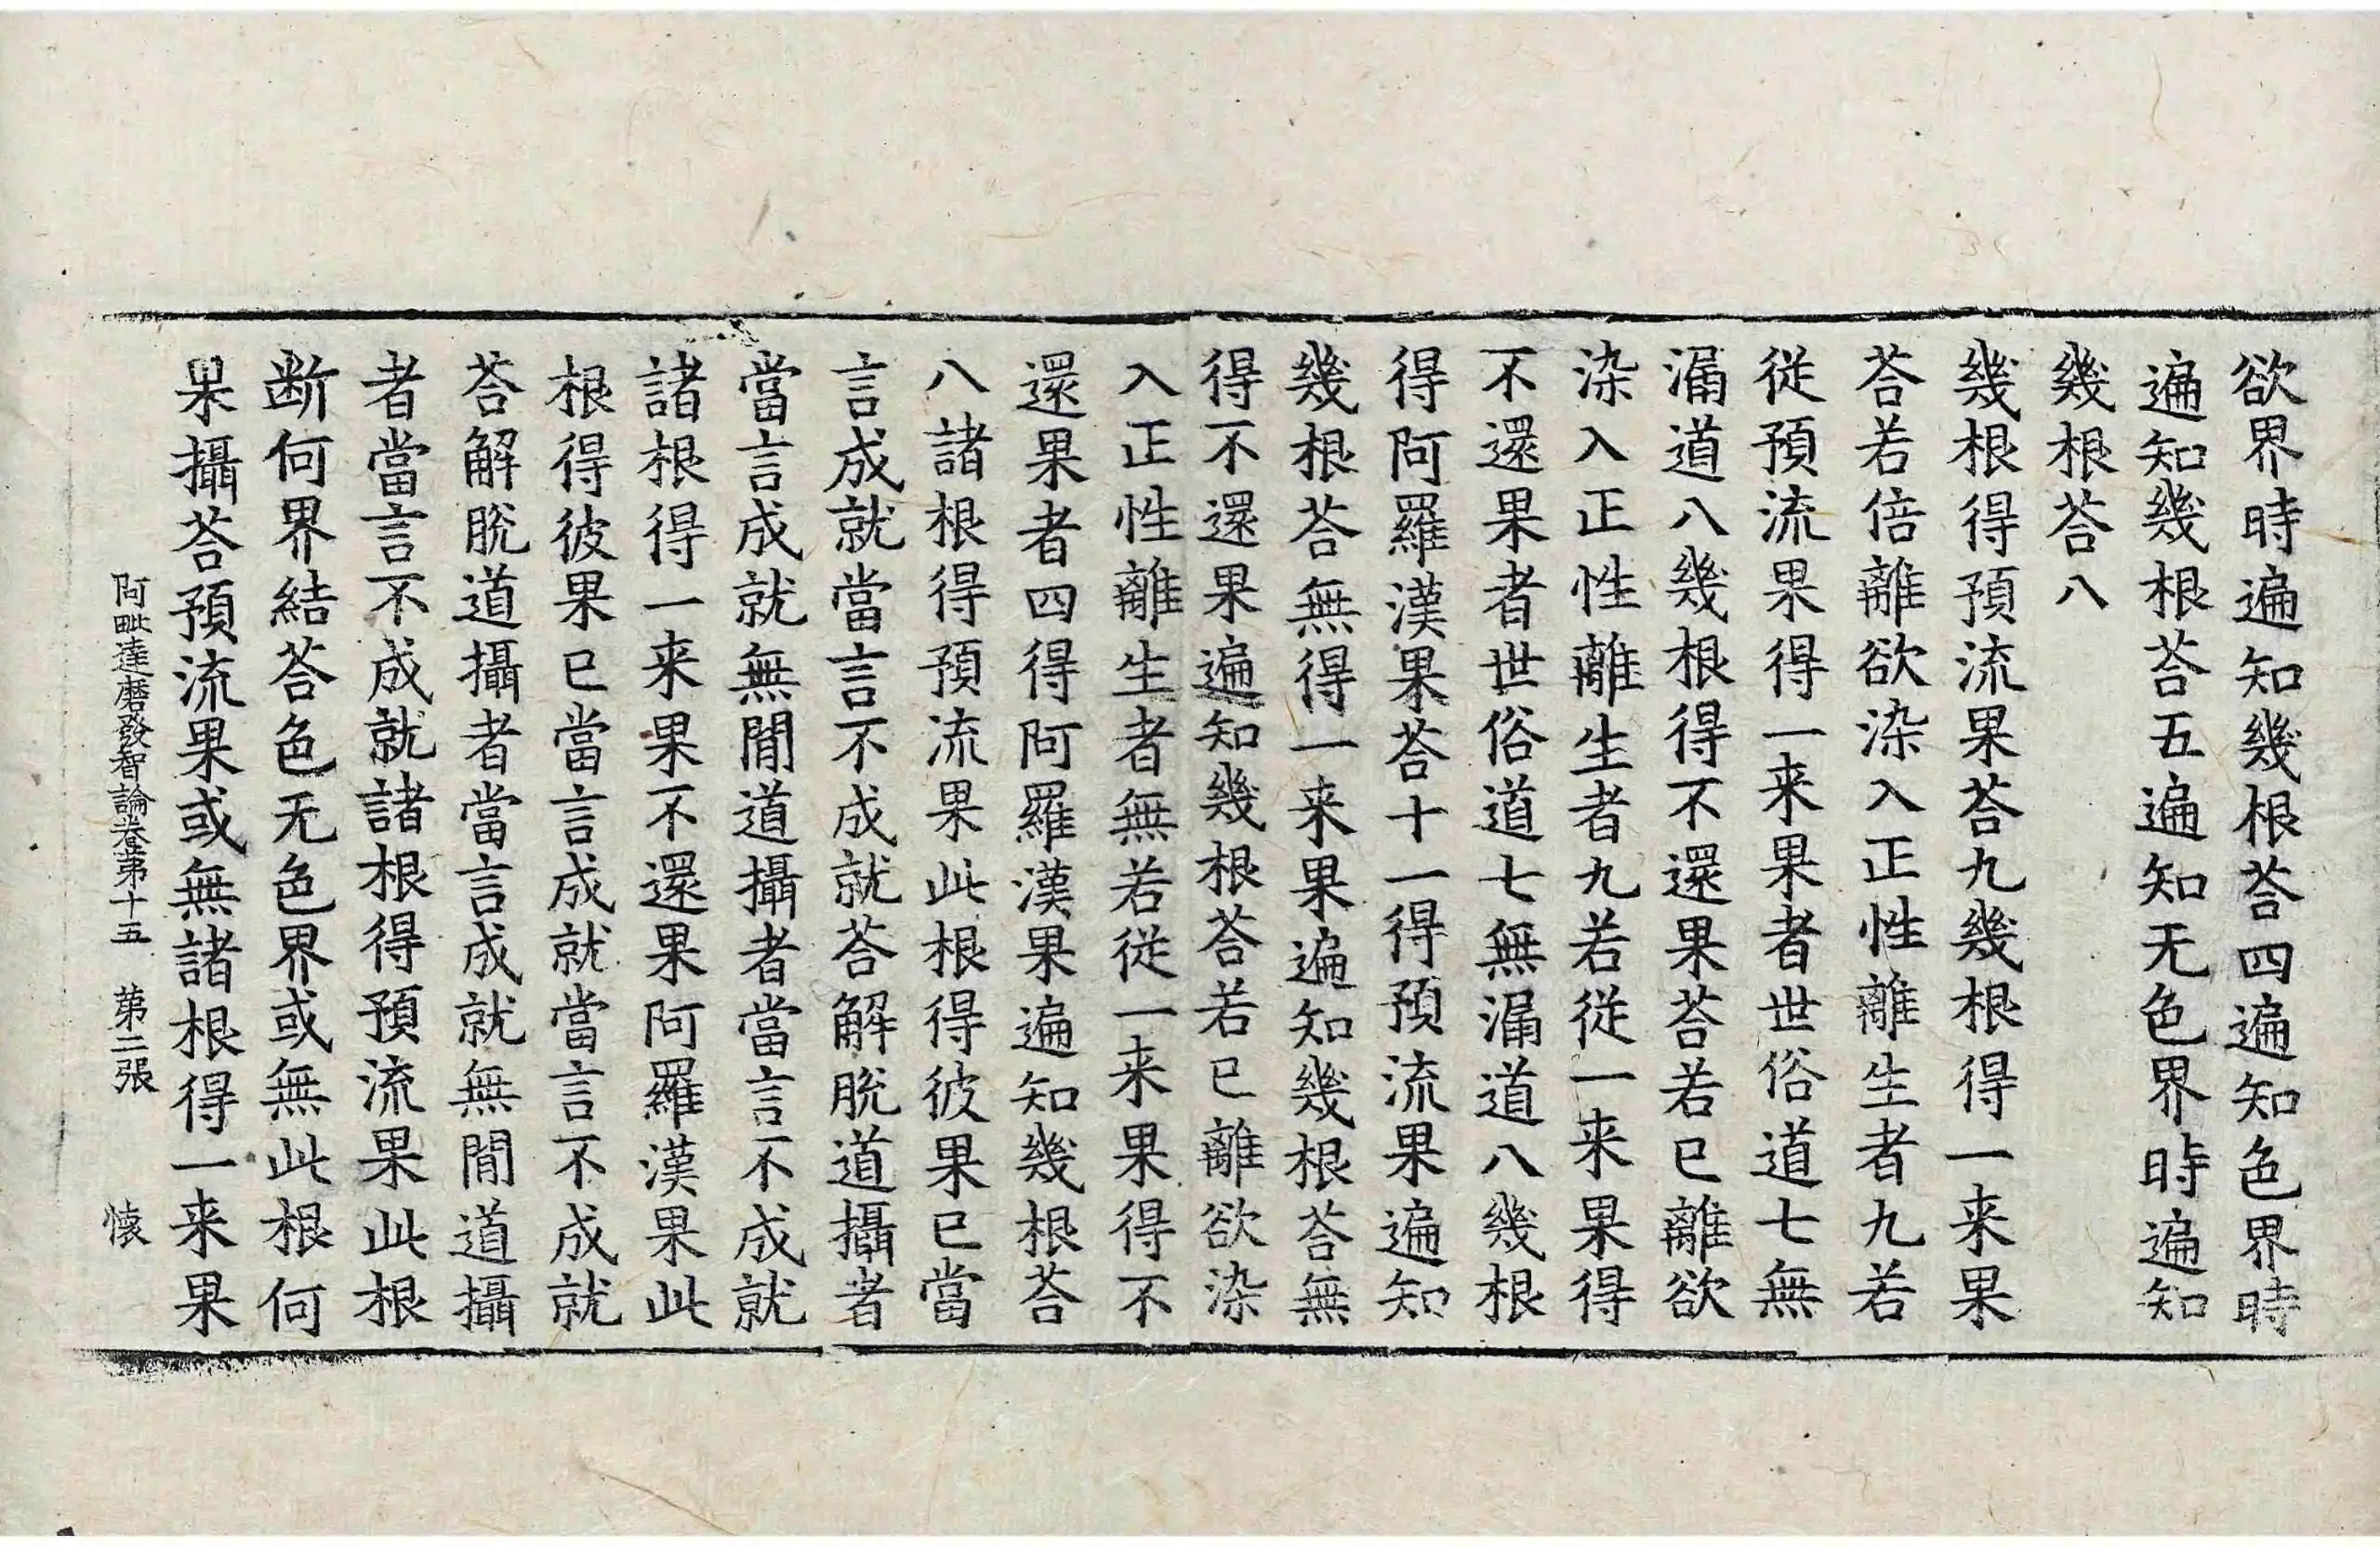 欲界時遍知幾根荅四遍知色界時
遍知幾根荅五遍知无色界時遍知
幾根荅八
幾根得預流果荅九幾根得一来果
荅若倍離欲染入正性離生者九若
従預流果得一来果者世俗道七無
漏道八幾根得不還果荅若已離欲
染入正性離生者九若従一来果得
不還果者世俗道七無漏道八幾根
得阿羅漢果荅十一得預流果遍知
幾根荅無得一来果遍知幾根荅無
得不還果遍知幾根荅若已離欲染
入正性離生者無若従一来果得不
還果者四得阿羅漢果遍知幾根荅
八諸根得預流果此根得彼果已當
言成就當言不成就荅解脫道攝者
當言成就無閒道攝者當言不成就
諸根得一来果不還果阿羅漢果此
根得彼果已當言成就當言不成就
荅解脫道攝者當言成就無閒道攝
者當言不成就諸根得預流果此根
断何界結荅色无色界或無此根何
果攝荅預流果或無諸根得一来果
阿毗達磨發智論卷第十五 第二張 懐